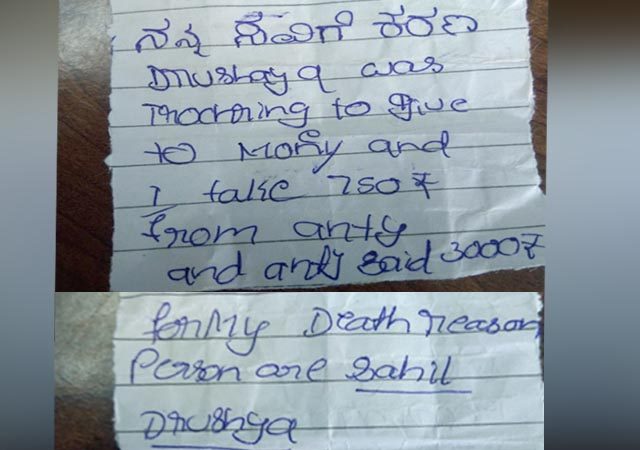 ನನ್ನ ಸಾವಿಗೆ ಕರಣ
Drushaya was
morning to give
to Money and
I take 750₹
from anty
and anty said 3000₹
for My Death reason
Person are Sahil
Drushya